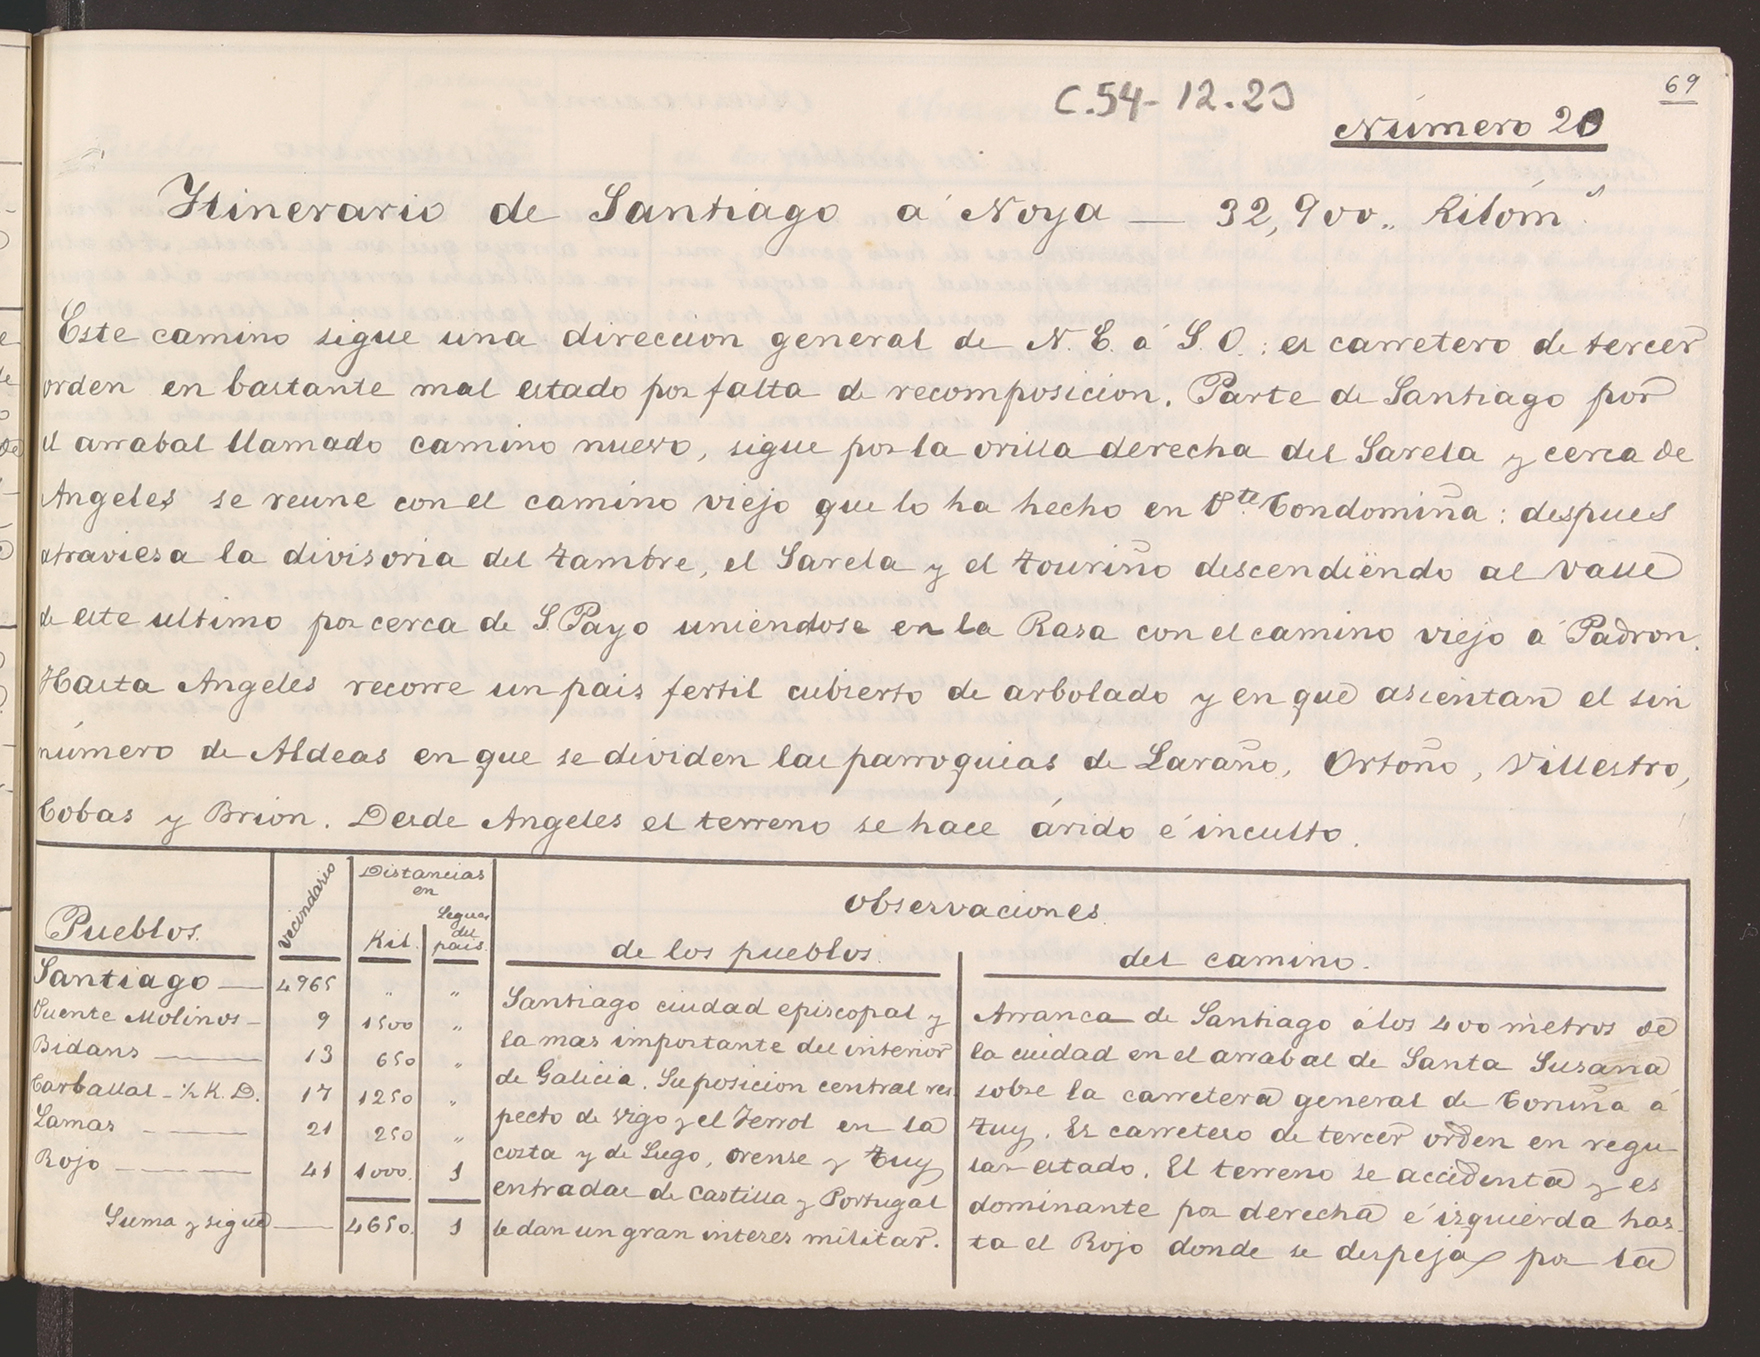 69
C.54-12.20
Número 20
Itinerario de Santiago á Noya — 32,900,, Kilómˢ
Este camino sigue una direccion general de N. E. á S. O.: es carretero de tercer
orden en bastante mal estado por falta de recomposicion. Parte de Santiago por
el arrabal llamado camino nuevo, sigue por la orilla derecha del Sarela y cerca de
Angeles se reune con el camino viejo que lo ha hecho en Pte. Condomiña: despues
atraviesa la divisoria del Tambre, el Sarela y el Touriño descendiendo al valle
de este ultimo por cerca de S. Payo uniendose en la Rasa con el camino viejo á Padron.
Hasta Angeles recorre un pais fertil cubierto de arbolado y en que asientan el sin
número de Aldeas en que se dividen las parroquias de Laraño, Ortoño, Villestro,
Cobas y Brion. Desde Angeles el terreno se hace árido é inculto.
Pueblos.
Vecindario
Distancias
en
Kil.
Leguas
del
pais.
Observaciones.
de los pueblos.
del camino.
Santiago — 4965 ,, ,,
Puente Molinos — 9 1500 ,,
Bidans — 13 650 ,,
Carballal - ½ K. D. 17 1250 ,,
Lamas — 21 250 ,,
Rojo — 41 1000. 1
Suma y sigue — 4650. 1
Santiago ciudad episcopal y
la mas importante del interior
de Galicia. Su posicion central res-
pecto de Vigo y el Ferrol en la
costa y de Lugo, Orense y Tuy
entradas de Castilla y Portugal
le dan un gran interes militar.
Arranca de Santiago á los 400 metros de
la ciudad en el arrabal de Santa Susana
sobre la carretera general de Coruña á
Tuy. Es carretero de tercer orden en regu-
lar estado. El terreno se accidenta y es
dominante por derecha é izquierda has-
ta el Rojo donde se despeja por la